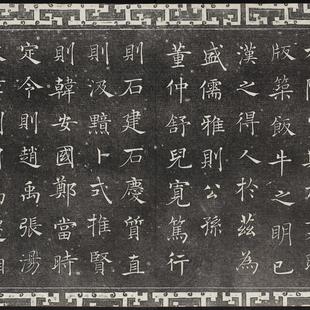 版築飯牛之明已
漢之得人於茲為
盛儒雅則公孫
董仲舒兒寬篤行
則石建石慶質直
則汲黯卜式推賢
則韓安國鄭當時
定令則趙禹張湯